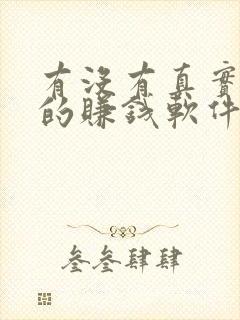 有沒有真實
的賺錢軟件
叁叁肆肆